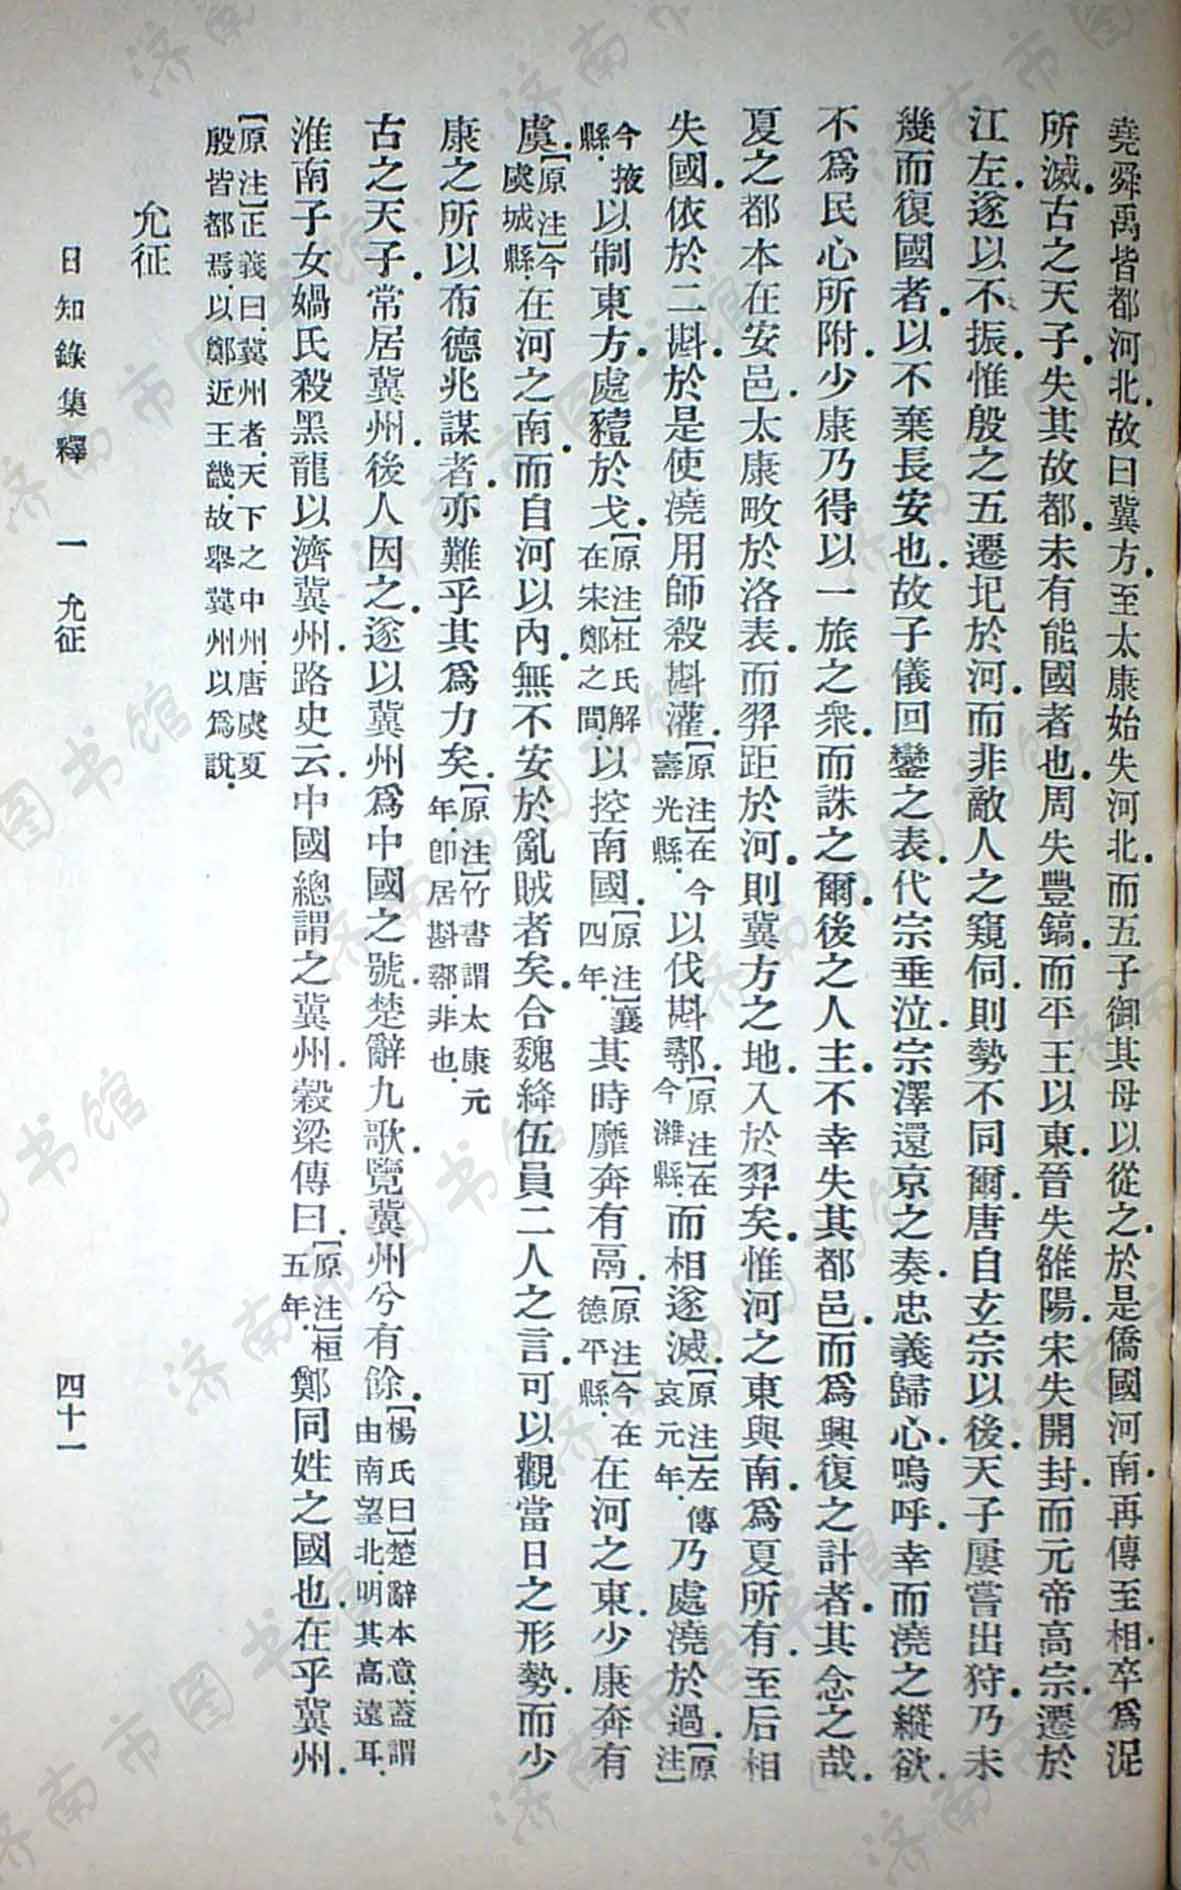 堯舜禹皆都河北.故曰冀方.至太康始失河北.而五子御其母以從之.於是僑國河南.再傳至相.卒爲浞
所滅.古之天子.失其故都.未有能國者也.周失豐鎬.而平王以東.晉失雒陽.宋失開封.而元帝高宗.遷於
江左.遂以不振.惟殷之五遷.圯於河.而非敵人之窺伺.則勢不同爾.唐自玄宗以後.天子屢嘗出狩.乃未
幾而復國者.以不棄長安也.故子儀回鑾之表.代宗垂泣.宗澤還京之奏.忠義歸心.嗚呼.幸而澆之縱欲.
不爲民心所附.少康乃得以一旅之衆.而誅之爾.後之人主.不幸失其都邑.而爲興復之計者.其念之哉.
夏之都本在安邑.太康畋於洛表.而羿距於河.則冀方之地.入於羿矣.惟河之東與南.爲夏所有.至后相
失國.依於二斟.於是使澆用師殺斟灌.[原注]在今壽光縣.以伐斟鄩.[原注]在今濰縣.而相遂滅.[原注]左傳哀元年.乃處澆於過.[原注]
今掖縣.以制東方.處豷於戈.[原注]杜氏解在宋鄭之間.以控南國.[原注]襄四年.其時靡奔有鬲.[原注]今在德平縣.在河之東.少康奔有
虞.[原注]今虞城縣.在河之南.而自河以內.無不安於亂賊者矣.合魏絳伍員二人之言.可以觀當日之形勢.而少
康之所以布德兆謀者.亦難乎其爲力矣.[原注]竹書謂太康元年.卽居斟鄩.非也.
古之天子.常居冀州.後人因之.遂以冀州爲中國之號.楚辭九歌.覽冀州兮有餘.[楊氏曰]楚辭本意.蓋謂由南望北.明其高遠耳.
淮南子女媧氏殺黑龍以濟冀州.路史云.中國總謂之冀州.穀梁傳曰.[原注]桓五年.鄭同姓之國也.在乎冀州.
[原注]正義曰.冀州者.天下之中州.唐虞夏殷皆都焉.以鄭近王畿.故舉冀州以爲說.
允征
日知錄集釋 一 允征 四十一
济南市图书馆